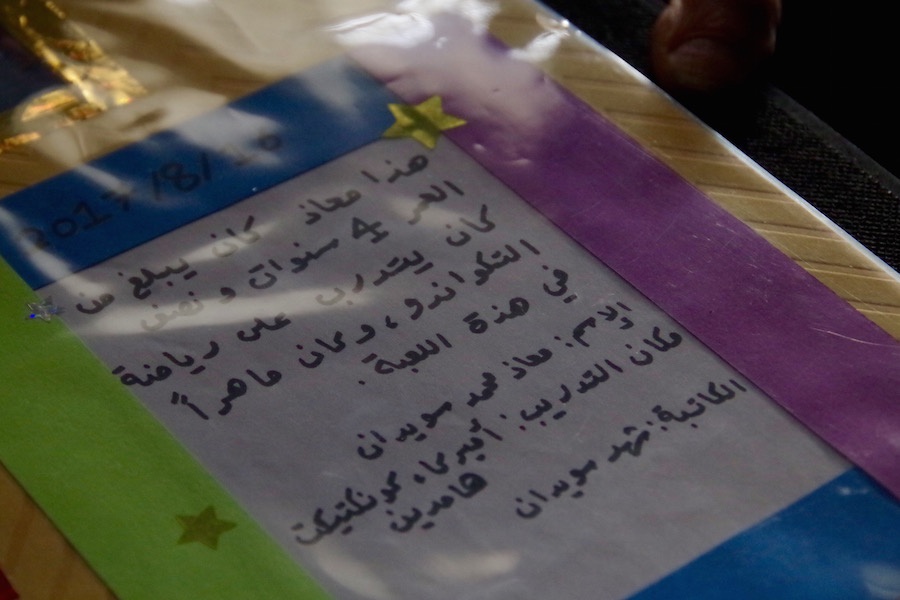 2017/8/10
هذا معاذ كان يبلغ من
العمر 4 سنوات و نصف
كان يتدرب على رياضة
التكواندو، وكان ماهراً
في هذة اللعبة.
والاسم: معاذ محمد سويدان
مكان التدريب: أميركا، كونكتيكت
هامدين
الكاتبة: شهد سويدان